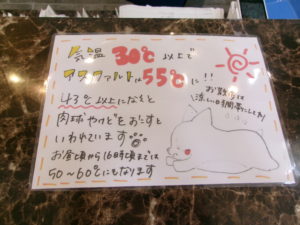 気温30℃以上で
アスファルトは55℃に!!
43℃以上になると
肉球やけどをおこすと
いわれています
お昼頃から16時頃までは
50〜60℃にもなります
お散歩は
涼しい時間帯にしてネ!